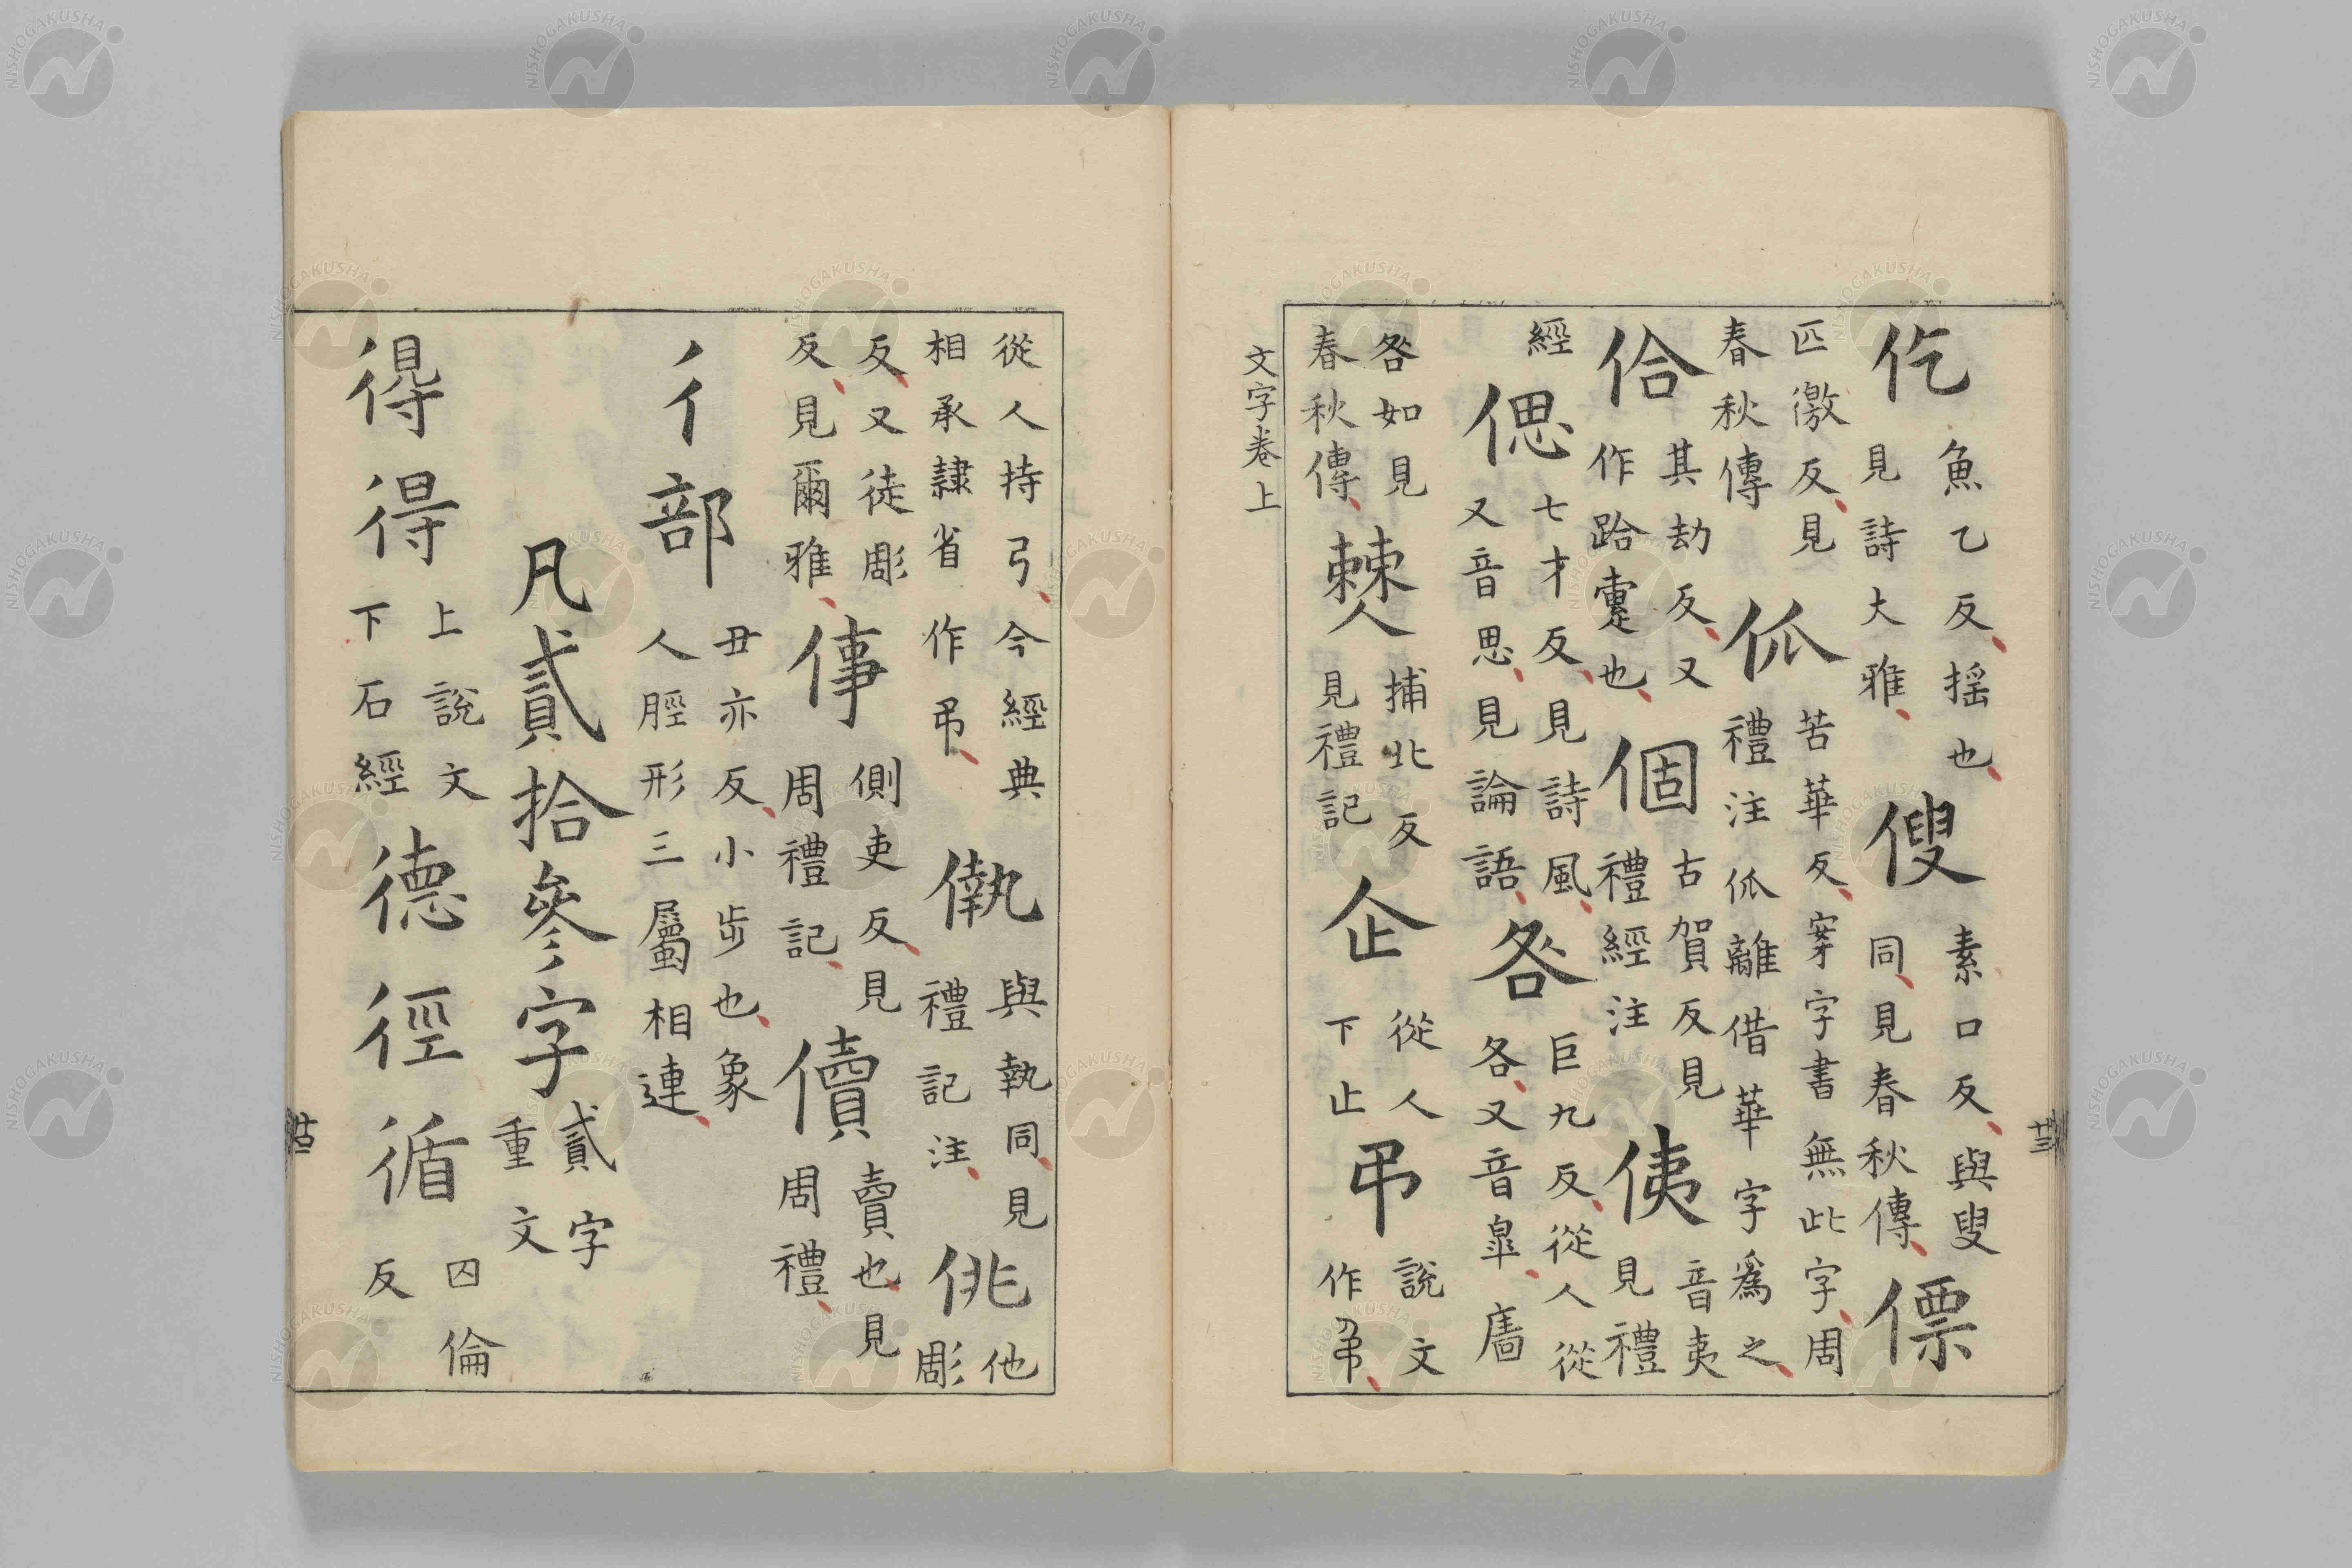 仡魚乙反搖也見詩大雅傁素口反與叟同見春秋傳僄
匹徼反見春秋傳㐾苦華反穿字書無此字周禮注㐾離借華字爲之
佮其劫反又作跲躓也個古賀反見禮經注侇音夷見禮
經偲七才反見詩風又音思見論語咎巨九反從人從各又音皐𠾂
咎如見春秋傳僰捕北反見禮記企從人下止弔說文作𢎪
文字卷上
廿三
從人持弓今經典相承隷省作弔㑯與執同見禮記注佻他彫
反又徒彫反見爾雅倳側吏反見周禮記儥賣也見周禮
彳部丑亦反小步也象人脛形三屬相連
凡貳拾參字貳字重文
㝵得上說文下石經德徑循囚倫反
NISHOGAKUSHA